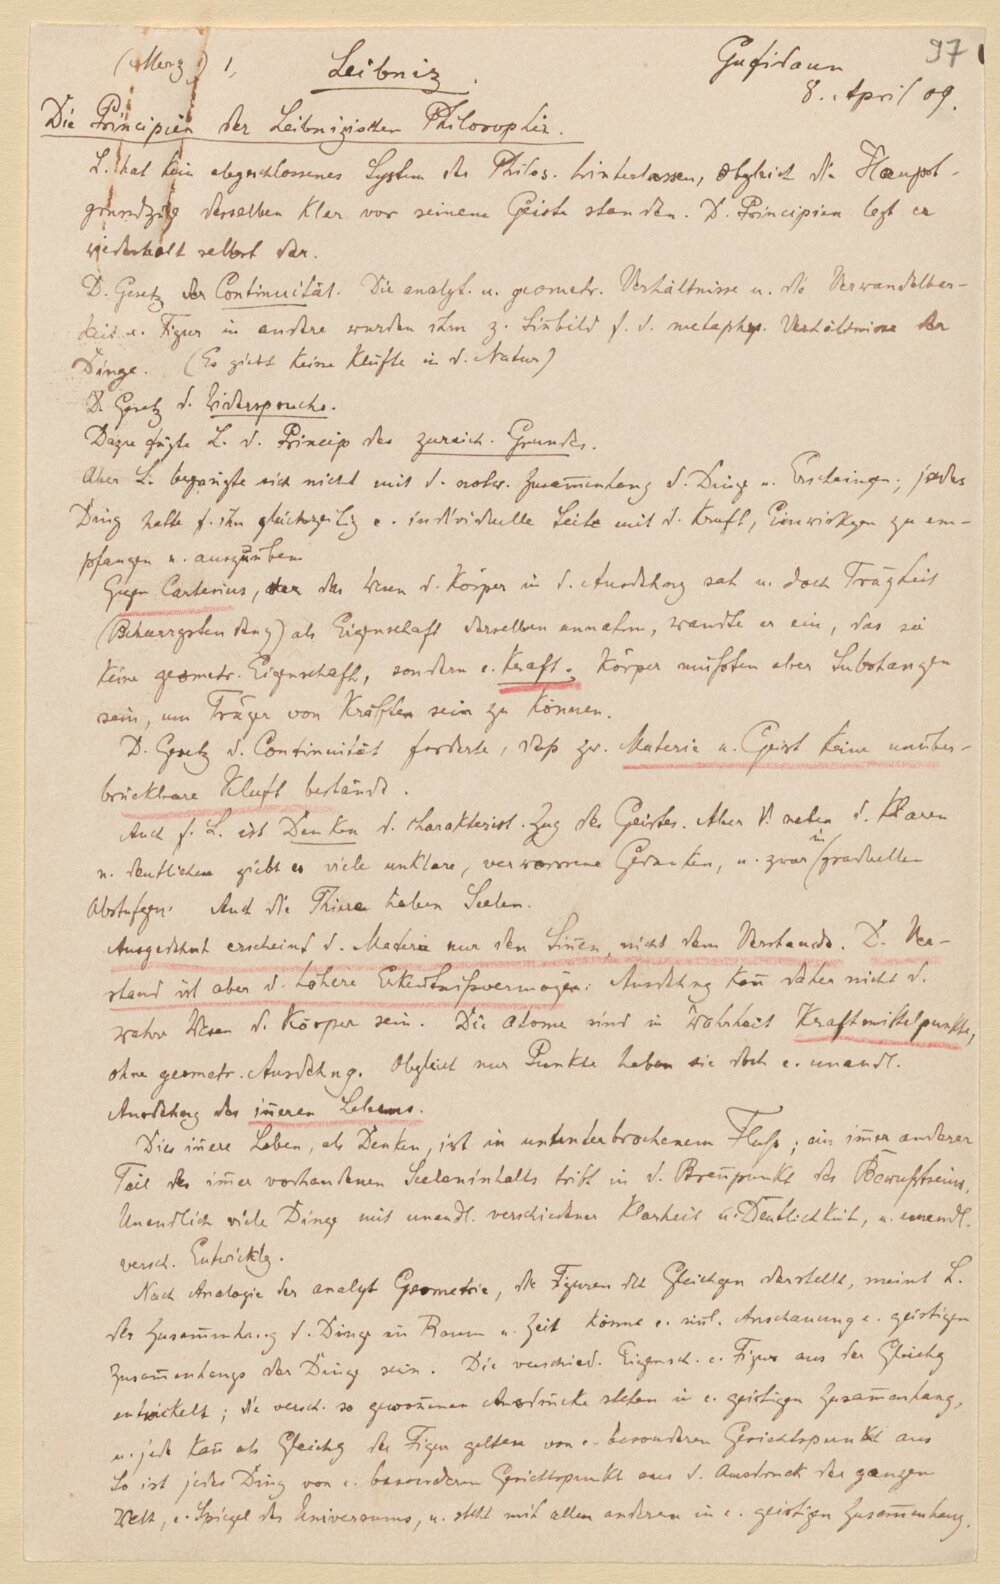 (Merz) 1, Leibniz. Gufidaun 97
8. April 09.
Die Principien der Leibnizischen Philosophie.
L. hat kein abgeschlossenes System der Philos. hinterlassen, obgleich die Haupt-
grundzüge derselben klar vor seinem Geiste standen. D. Principien legt er
wiederholt selbst dar.
D. Gesetz der Continuität. Die analyt. u. geometr. Verhältnisse u. die Verwandelbar-
keit e. Figur in andere wurden ihm z. Sinbild f. d. metaphys. Verhältnisse der
Dinge. (Es giebt keine Klüfte in d. Natur)
D. Gesetz d. Widerspruchs.
Dazu fügte L. d. Princip des zureich. Grundes.
Aber L. begnügte sich nicht mit d. notw. Zusam̅enhang d. Dinge u. Erscheingen; jedes
Ding hatte f. ihn gleichzeitig e. individuelle Seite mit d. Kraft, Einwirkgen zu em-
pfangen u. auszuüben.
Gegen Cartesius, der das Wesen d. Körper in d. Ausdehng sah u. doch Trägheit
(Beharrgstendenz) als Eigenschaft derselben annahm, wandte er ein, das sei
keine geometr. Eigenschaft, sondern e. Kraft. Körper müssten aber Substanzen
sein, um Träger von Kräften sein zu können.
D. Gesetz d. Continuität forderte, dass zw. Materie u. Geist keine unüber-
brückbare Kluft bestände.
Auch f. L. ist Denken d. charakterist. Zug des Geistes. Aber neben d. klaren
u. deutlichen giebt es viele unklare, verworrene Gedanken, u. zwar in graduellen
Abstufgen. Auch die Thiere haben Seelen.
Ausgedehnt erscheint d. Materie nur den Sin̅en, nicht dem Verstande. D. Ver-
stand ist aber d. höhere Erken̅tnissvermögen. Ausdehng kan̅ daher nicht d.
wahre Wesen d. Körper sein. Die Atome sind in Wahrheit Kraftmittelpunkte,
ohne geometr. Ausdehng. Obgleich nur Punkte haben sie doch e. unendl.
Ausdehng des in̅eren Lebens.
Dies in̅ere Leben, als Denken, ist in ununterbrochenem Fluss; ein im̅er anderer
Teil des im̅er vorhandenen Seeleninhalts tritt in d. Bren̅punkt des Bewusstseins.
Unendlich viele Dinge mit unendl. verschiedener Klarheit u. Deutlichkeit, u. unendl.
versch. Entwicklg.
Nach Analogie der analyt Geometrie, die Figuren dch Gleichgen darstellt, meint L.
der Zusam̅enhang d. Dinge in Raum u. Zeit könne e. sin̅l. Anschauung e. geistigen
Zusam̅enhangs der Dinge sein. Die verschied. Eigensch. e. Figur aus der Gleichg
entwickelt; die versch. so gewon̅enen Ausdrücke stehen in e. geistigen Zusam̅enhang,
u. jede kan̅ als Gleichg der Figur gelten von e. besonderen Gesichtspunkt aus
So ist jedes Ding von e. besonderen Gesichtspunkt aus d. Ausdruck der ganzen
Welt, e. Spiegel des Universums, u. steht mit allen anderen in e. geistigen Zusam̅enhang.